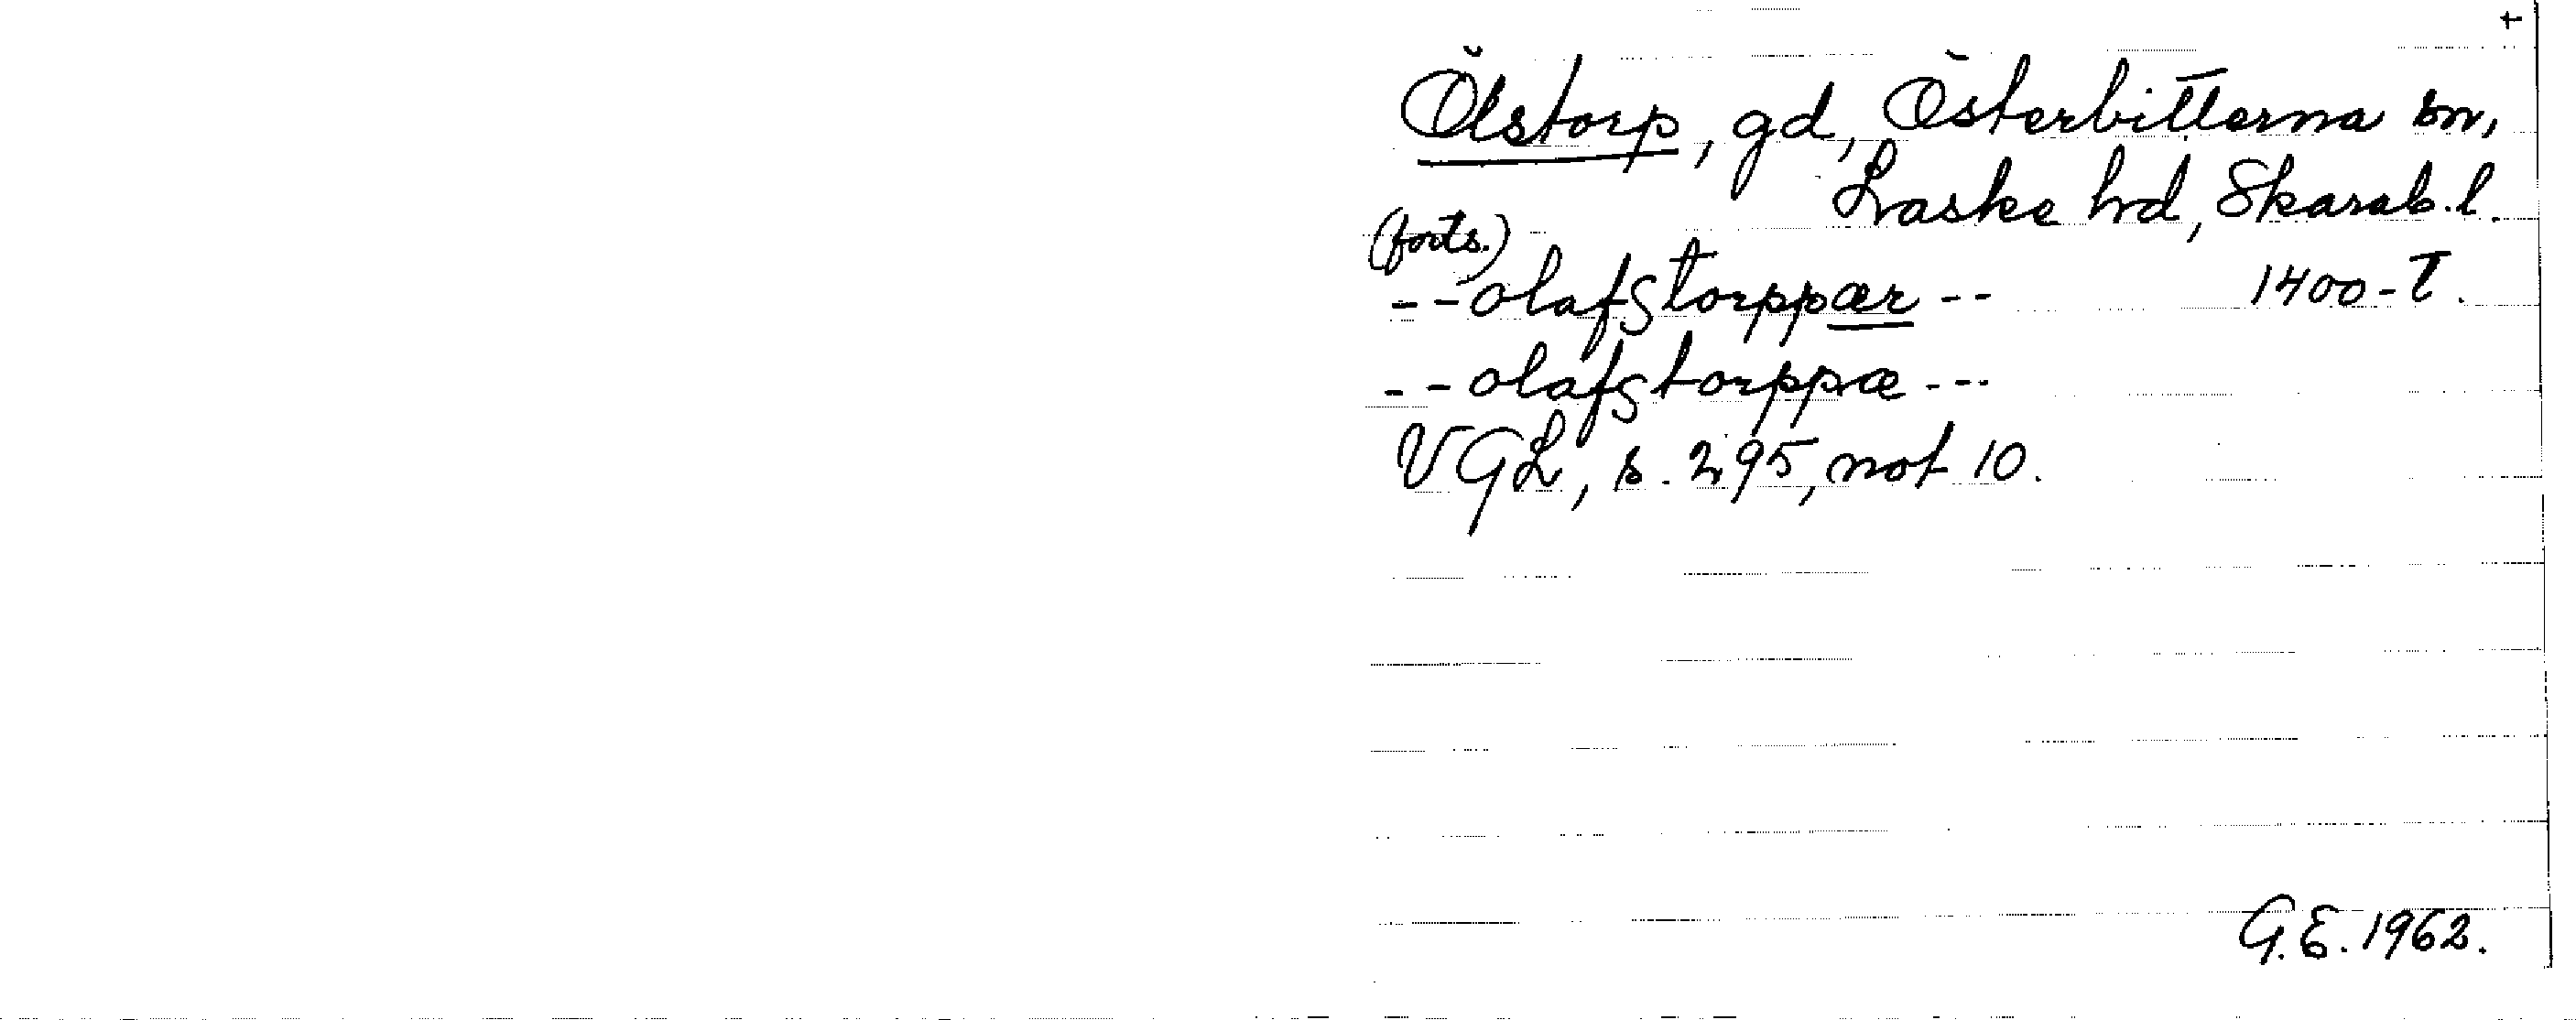 +
Ölstorp, gd, Österbitterna sn,
Laske hd, Skarab. l.
(forts.)
--olafstorppær-- 1400-t.
--olafstorppæ---
VGL, s. 295, not 10.
G.E. 1962.